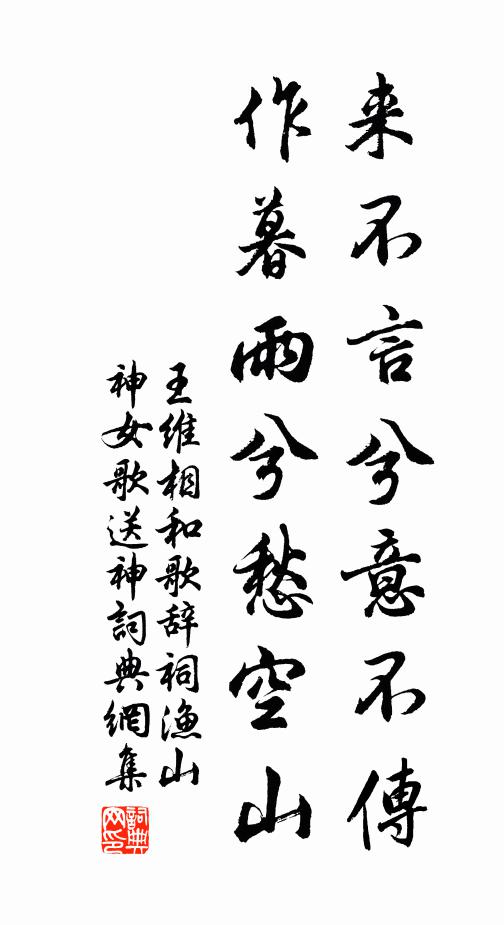 来不言兮意不傳
作暮雨兮愁空山
王維相和歌辞祠漁山
神女歌送神詞典網集
詞典
网印